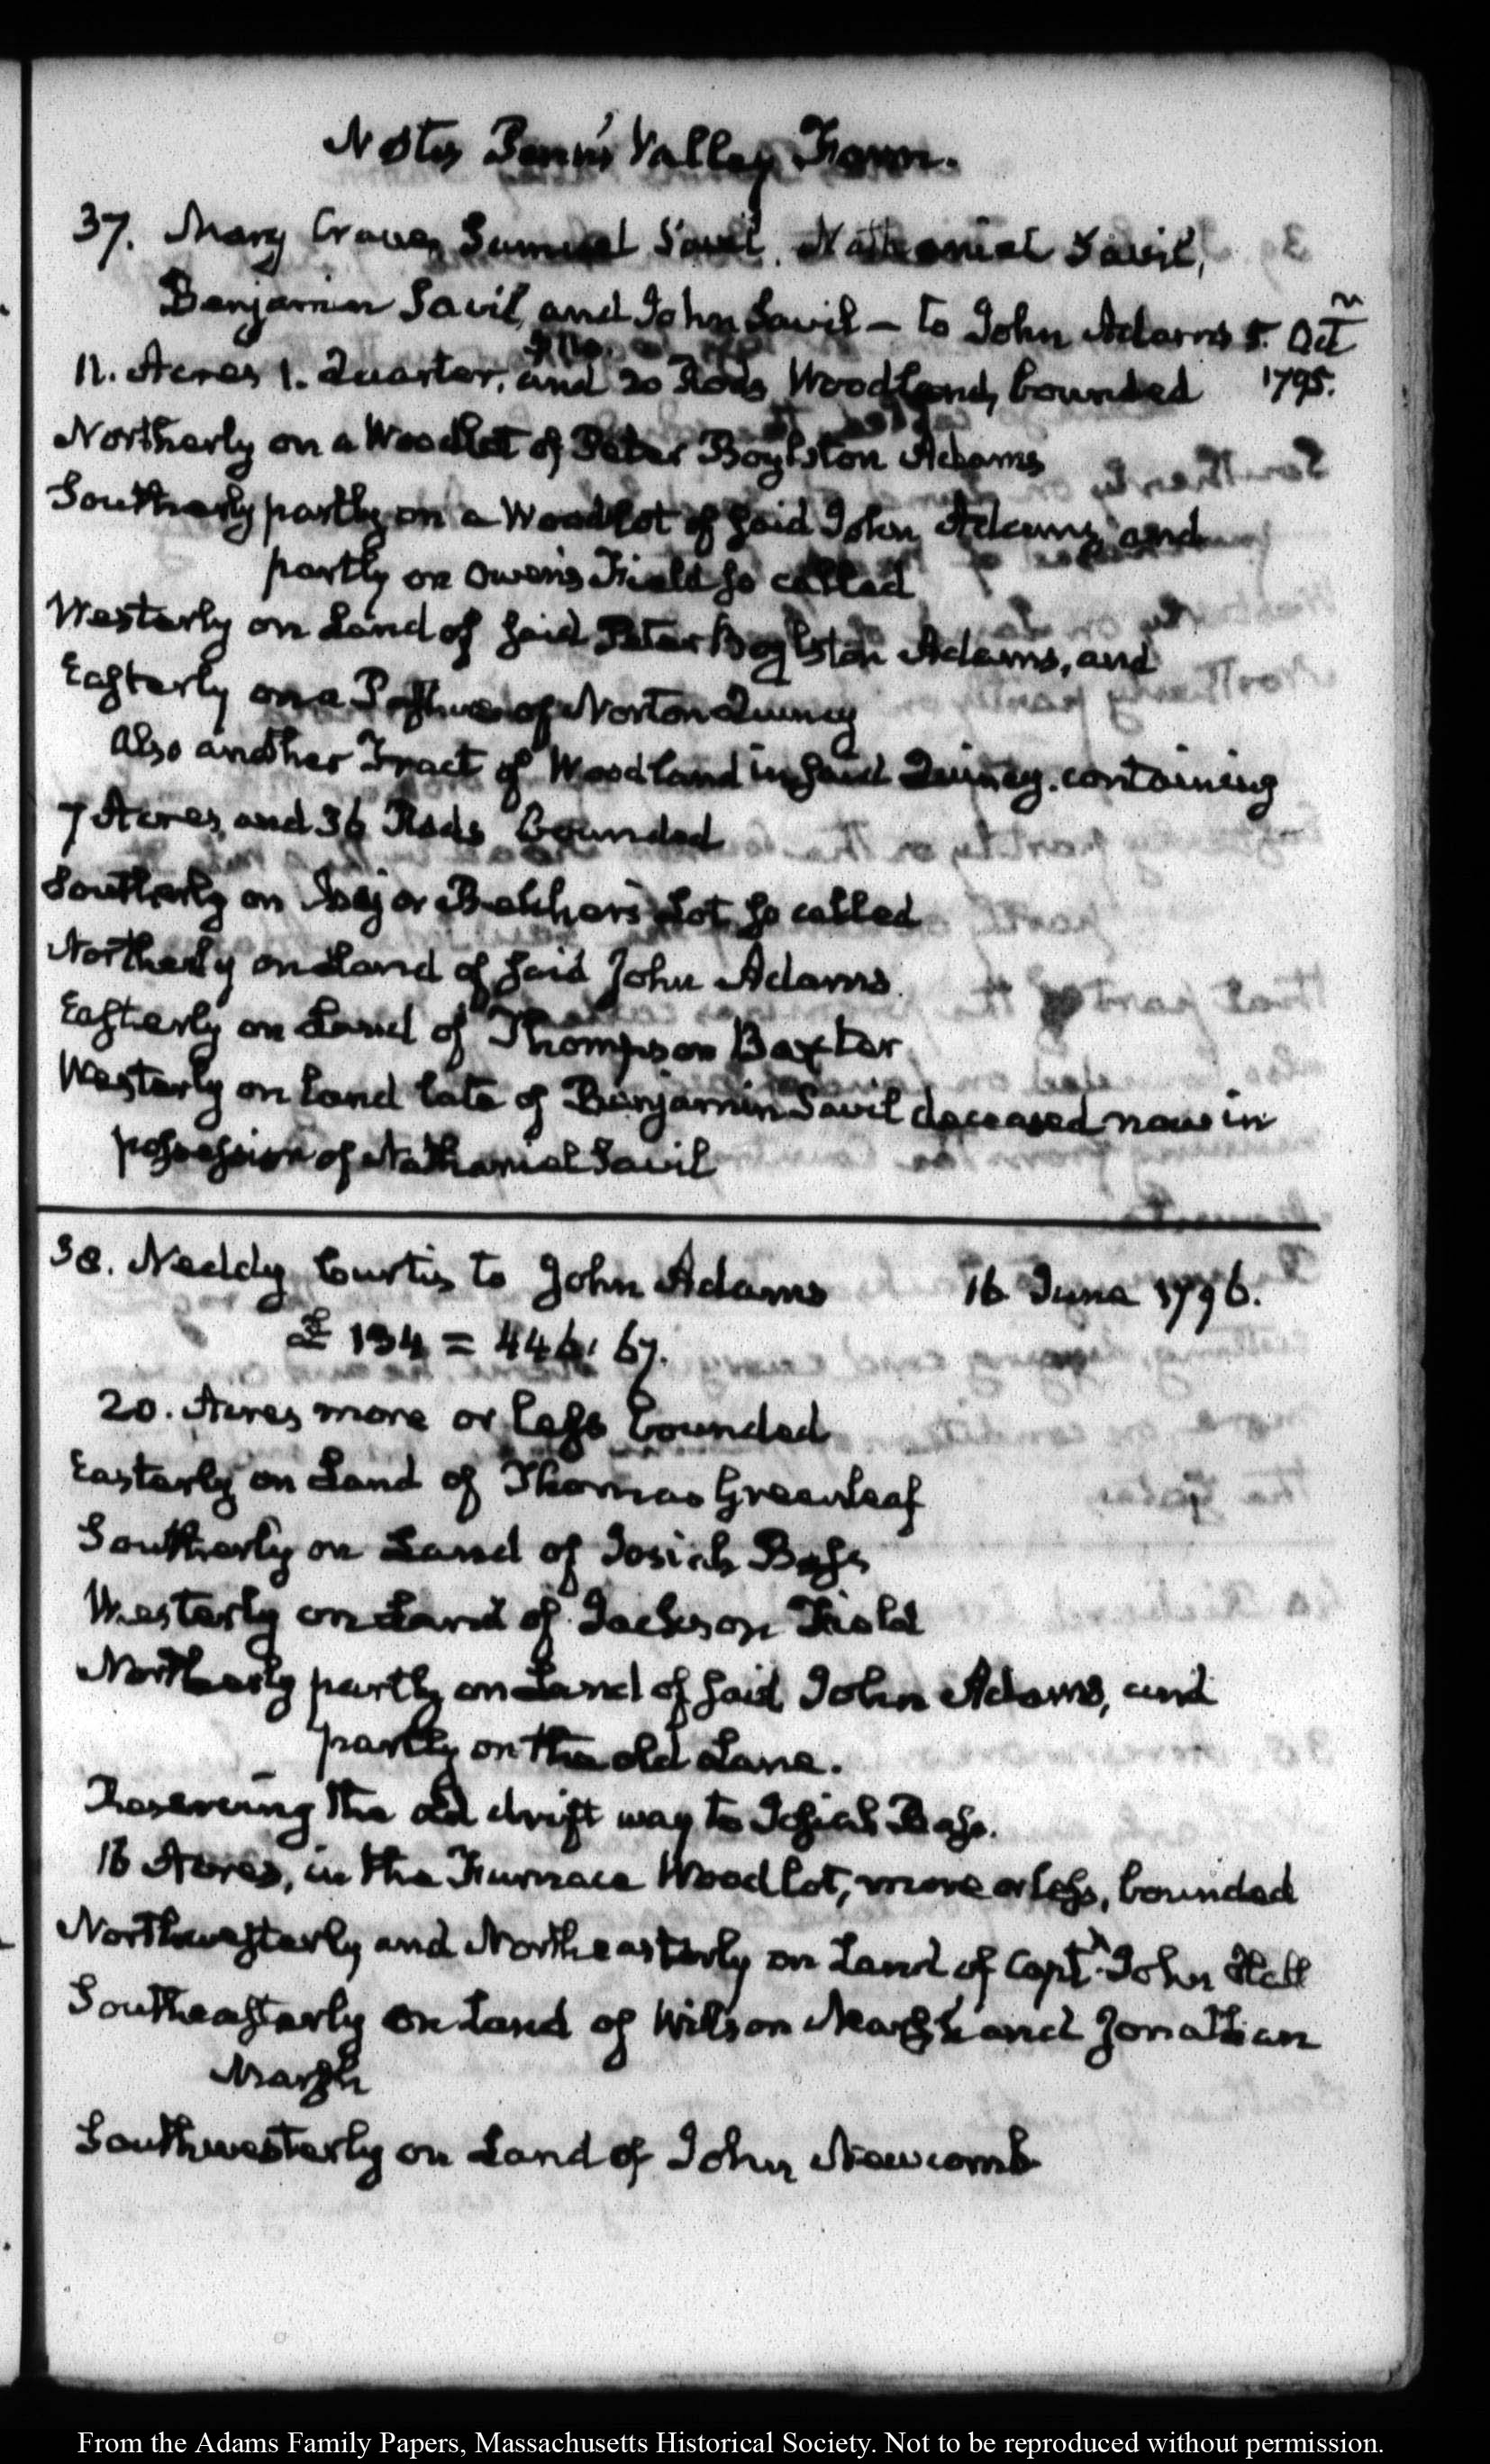 Notes Penn's Valley Farm.
37. Mary Crane, Samuel Savil, Nathaniel Savil,
Benjamin Savil, and John Savil – to John Adams 5. Oct
11. Acres 1. Quarter, and 20 Rods Woodland, bounded 1795.
Northerly on a Woodlot of Peter Boylston Adams
Southerly partly on a Woodlot of said John Adams, and
partly on Owen's Field so called
Westerly on Land of said Peter Boylston Adams, and
Easterly on a Pasture of Norton Quincy
Also another Tract of Woodland in said Quincy. containing
7 Acres and 36 Rods Bounded
Southerly on Major Belcher's Lot so called
Northerly on Land of said John Adams
Easterly on Land of Thompson Baxter
Westerly on Land late of Benjamin Savil deceased now in
possession of Nathaniel Savil
38. Neddy Curtis to John Adams 16 June 1796.
£ 134 = 446: 67.
20. Acres more or less bounded
Easterly on Land of Thomas Greenleaf
Southerly on Land of Josiah Bass
Westerly on Land of Jackson Field
Northerly partly on Land of said John Adams, and
partly on the old Lane.
Reserving the old drift way to Josiah Bass.
16 Acres, in the Furnace Woodlot, more or less, bounded
Northwesterly and Northeasterly on Land of Capt. John Hall
Southeasterly on Land of Wilson Marsh and Jonathan
Marsh
Southwesterly on Land of John Newcomb
From the Adams Family Papers, Massachusetts Historical Society. Not to be reproduced without permission.